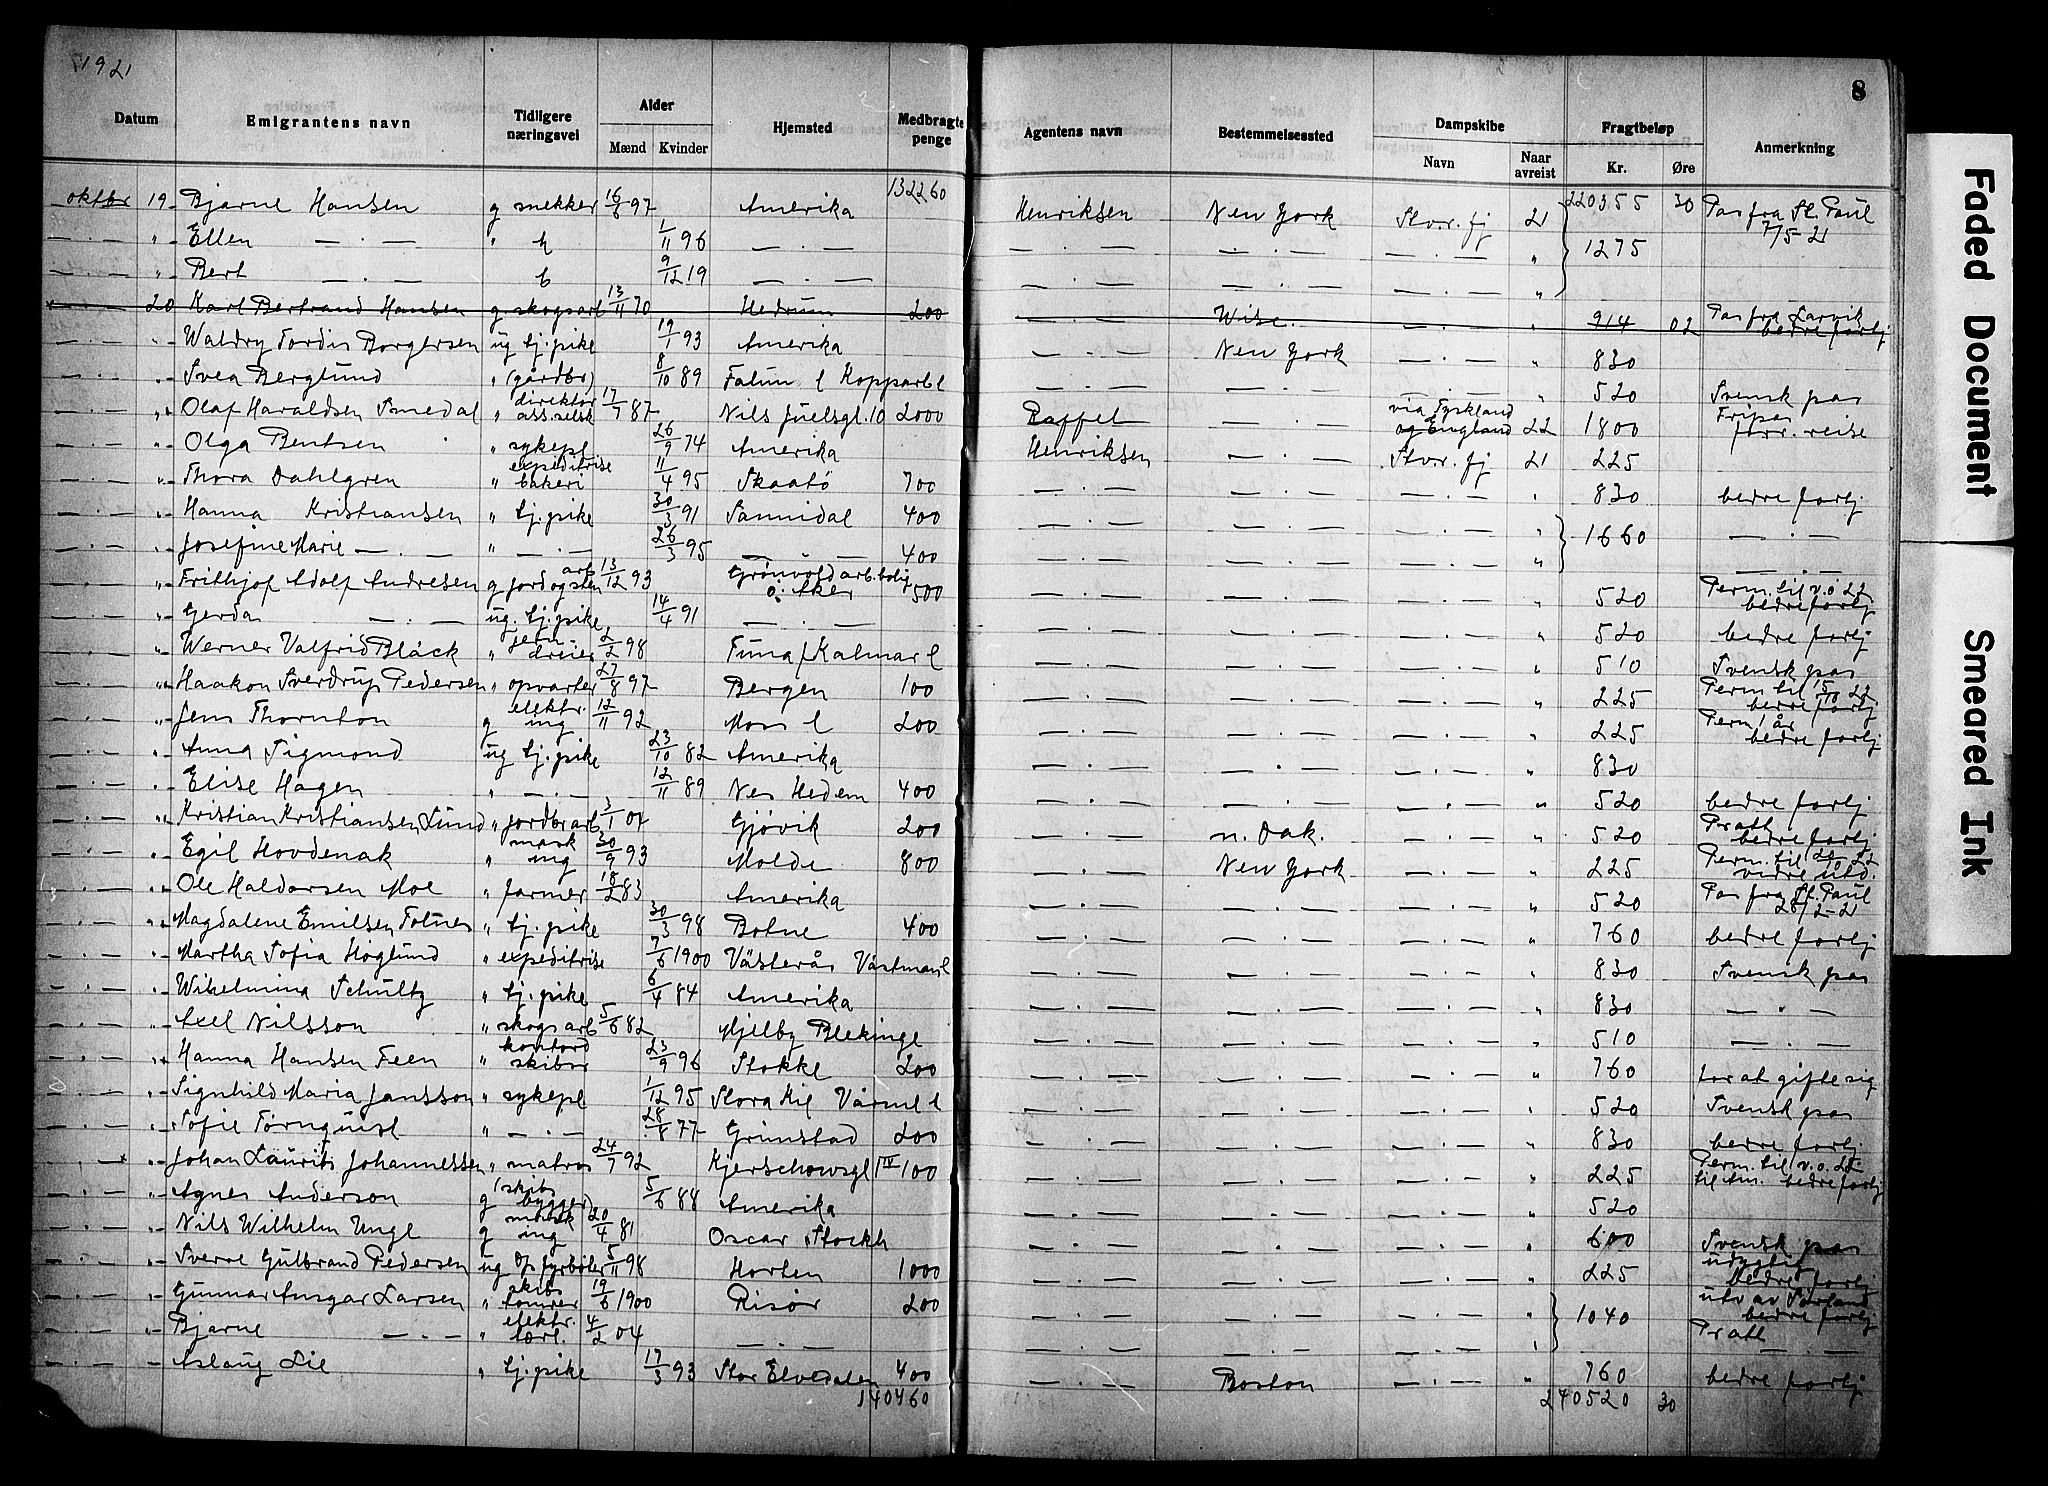 1921
8
Datum Emigrantens navn Tidligere næringsvei Alder Mænd Kvinder Hjemsted Medbragte penge Agentens navn Bestemmelsessted Dampskibe Navn Naar avreist Fragtbeløp Kr. Øre Anmerkning
132260 220355 30
oktbr 19 Bjarne Hansen g snekker 16/6 97 Amerika Henriksen New York Stvr. fj 21 Pas fra St. Paul 7/5-21
— . — " Ellen — . — " h 1/11 96 — . — — . — — . — — . — " 1275
— . — " Bert — . — b 9/12 19 — . — — . — — . — — . — "
— . — 20 Karl Bertrand Hansen g. skogsarb 13/11 70 Hedrum 200 — . — Wisc. — . — " 914 02 Pas fra Larvik bedre forhj
— . — " Waldry Tordis Borgersen ug tj. pike 19/1 93 Amerika — . — New York — . — " 830
— . — " Svea Berglund " (gårdbr) 8/10 89 Falun l Kopparb l — . — — . — — . — " 520 Svensk pas
— . — " Olaf Haraldsen Smedal " direktør ass. selsk 17/7 87 Nils Juelsgt. 10 2000 Raffel — . — via Tyskland og England 22 1800 Fripas forr. reise
— . — " Olga Bentsen " sykepl 26/9 74 Amerika Henriksen — . — Stvr. fj 21 225
— . — " Thora Dahlgren " expeditrise bakeri 11/4 95 Skaatø 700 — . — — . — — . — " 830 bedre forhj
— . — " Hanna Kristiansen " tj. pike 30/3 91 Sannidal 400 — . — — . — — . — " 1660 — . —
— . — " Josefine Marie — . — " — . — 26/3 95 — . — 400 — . — — . — — . — " — . —
— . — " Frithjof Adolf Andresen g jord og sten arb 13/12 93 Grønvold arb. bolig ø. Aker 500 — . — — . — — . — " 520 Perm. til v.o 22 bedre forhj
— . — " Gerda — . — ug. tj. pike 14/4 91 — . — — . — — . — — . — " 520 bedre forhj
— . — " Werner Valfrid Bläck " jern dreier 2/2 98 Tuna / Kalmar l — . — — . — — . — " 510 Svensk pas
— . — " Haakon Sverdrup Pedersen " opvarter 27/8 97 Bergen 100 — . — — . — — . — " 225 Perm til 15/10 22 bedre forhj
— . — " Jens Thornton g elektr. ing 12/11 92 Moss l 200 — . — — . — — . — " 225 Perm 1 år bedre forhj
— . — " Anna Sigmond ug tj. pike 23/10 82 Amerika — . — — . — — . — " 830
— . — " Elise Hagen " — . — 12/11 89 Nes Hedem 400 — . — — . — — . — " 520 bedre forhj
— . — " Kristian Kristiansen Lund " jordbrarb 3/1 04 Gjøvik 200 — . — n. Dak. — . — " 520 Pratt bedre forhj
— . — " Egil Hovdenak " mask ing 30/9 93 Molde 800 — . — New York — . — " 225 Perm. til 22 vidre utd.
— . — " Ole Haldorsen Moe " farmer 18/2 83 Amerika — . — — . — — . — " 520 Pas fra St. Paul 28/2-21
— . — " Magdalene Emilsen Tolnes " tj. pike 30/3 98 Botne 400 — . — — . — — . — " 760 bedre forhj
— . — " Martha Sofia Höglund " expeditrise 7/6 1900 Västerås Västmanl — . — — . — — . — " 830 Svensk pas
— . — " Wilhelmina Schultz " tj. pike 6/4 84 Amerika — . — — . — — . — " 830 — " —
— . — " Axel Nilsson " skogsarb 5/6 82 Mjelby Blekinge — . — — . — — . — " 510 — . —
— . — " Hanna Hansen Feen " kontord skibsr 23/9 96 Stokke 200 — . — — . — — . — " 760 for at gifte sig
— . — " Signhild Maria Jansson " sykepl 1/12 95 Stora Kil Värml l — . — — . — — . — " 520 Svensk pas
— . — " Sofie Törnquist " — . — 28/8 77 Grimstad 200 — . — — . — — . — " 830 bedre forhj
— . — " Johan Laurits Johannessen " matros 24/7 92 Kjerschowsgt 1 IV 100 — . — — . — — . — " 225 Perm. til v.o. 22 til Am. bedre forhj
— . — " Agnes Anderson g (skibsbygger) 5/6 84 Amerika — . — — . — — . — " 520
— . — " Nils Wilhelm Unge g mask ing 20/4 81 Oscar Stockh — . — — . — — . — " 600 Svensk pas
— . — " Sverre Gulbrand Pedersen ug op fyrbøter 5/11 98 Horten 1000 — . — — . — — . — " 225 udygtig bedre forhj
— . — " Gunnar Ansgar Larsen " skibs tømrer 19/6 1900 Risør 200 — . — — . — — . — " 1040 utv av Sørland bedre forhj
— . — " Bjarne — . — " elektr. lærl. 4/2 04 — . — — . — — . — — . — " Pratt — . —
— . — " Aslaug Lie " tj. pike 17/3 93 Stor Elvedalen 400 — . — Boston — . — " 760 bedre forhj
140460 240520 30
Faded Document
Smeared Ink